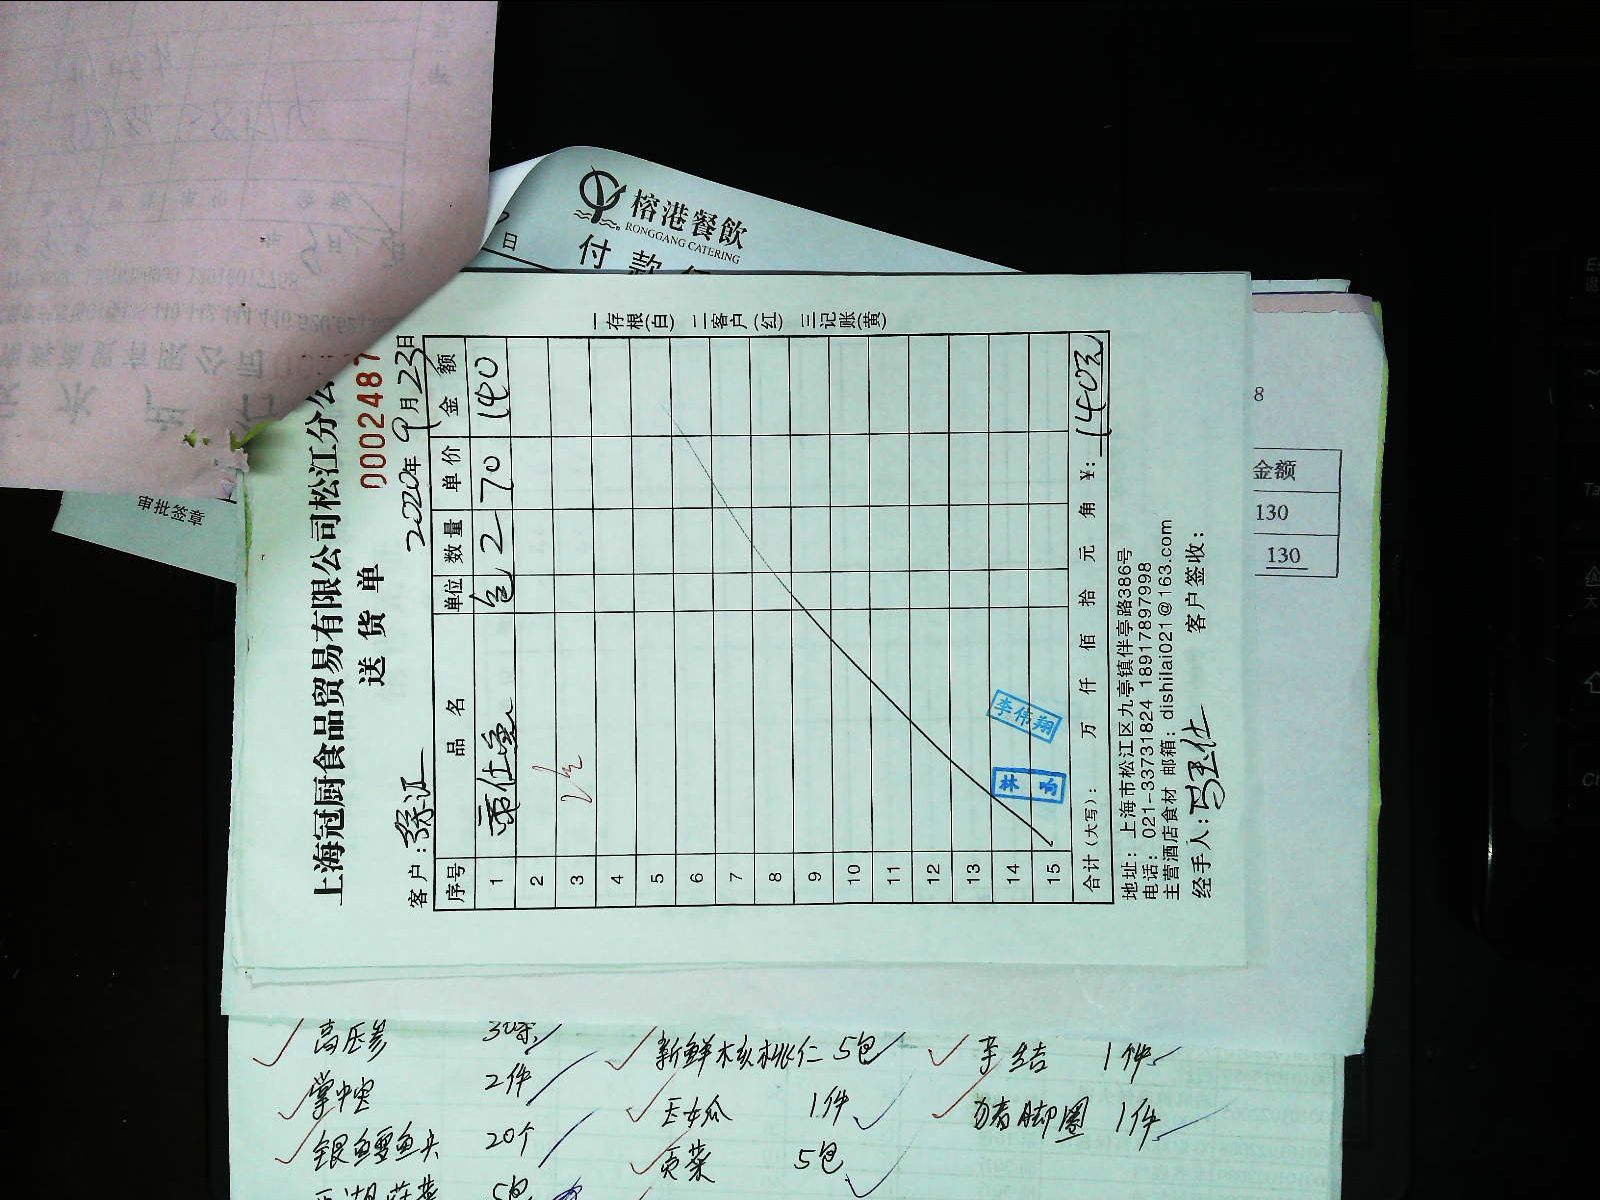 榕港餐飲
RONGGANG CATERING
付款
日
审批签章
上海冠厨食品贸易有限公司松江分公
送货单
0002487
客户：徐江
2020年9月23日
序号 品名 单位 数量 单价 金额
1 帝仕 包 2 70 140
2
3
4
5
6
7
8
9
10
11
12
13
14
15
李伟翔
合计（大写）： 万 仟 佰 拾 元 角 ¥：140元
一存根(白) 二客户(红) 三记账(黄)
地址：上海市松江区九亭镇伴亭路386号
电话：021-33731824 18917897998
主营酒店食材 邮箱：dishilai021@163.com
经手人： 客户签收：
8
金额
130
130
高压参 30条
掌中宝 2件
银鳕鱼头 20个
5包
新鲜木核桃仁 5包
玉女瓜 1件
贡菜 5包
羊结 1件
猪脚圈 1件